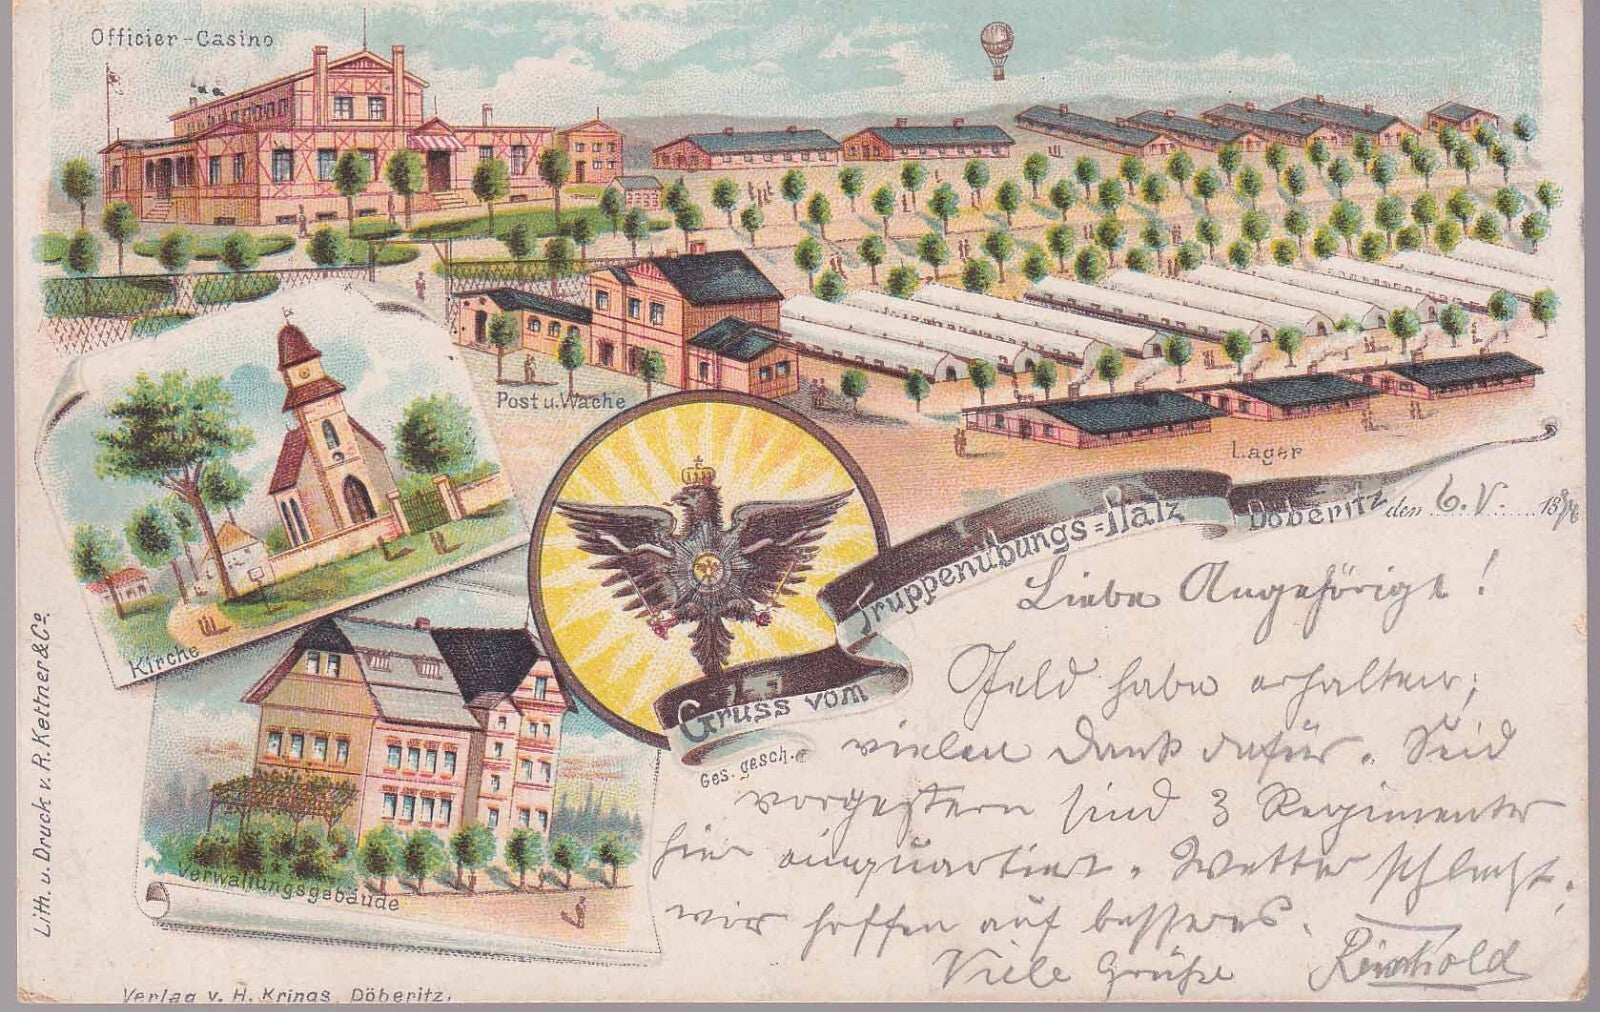 Officier-Casino
Post u. Wache
Lager
Kirche
Verwaltungsgebäude
Gruss vom
Truppenübungs=Platz
Döberitz den 6. V. 18
Ges. gesch.
Liebe Angehörige!
Geld habe erhalten,
vielen Dank dafür. Seid
vorgestern sind 3 Regimenter
hier einquartiert. Wetter schlecht,
wir hoffen auf besseres.
Viele Grüße Reinhold
Lith. u. Druck v. R. Kettner & Co.
Verlag v. H. Krings, Döberitz.